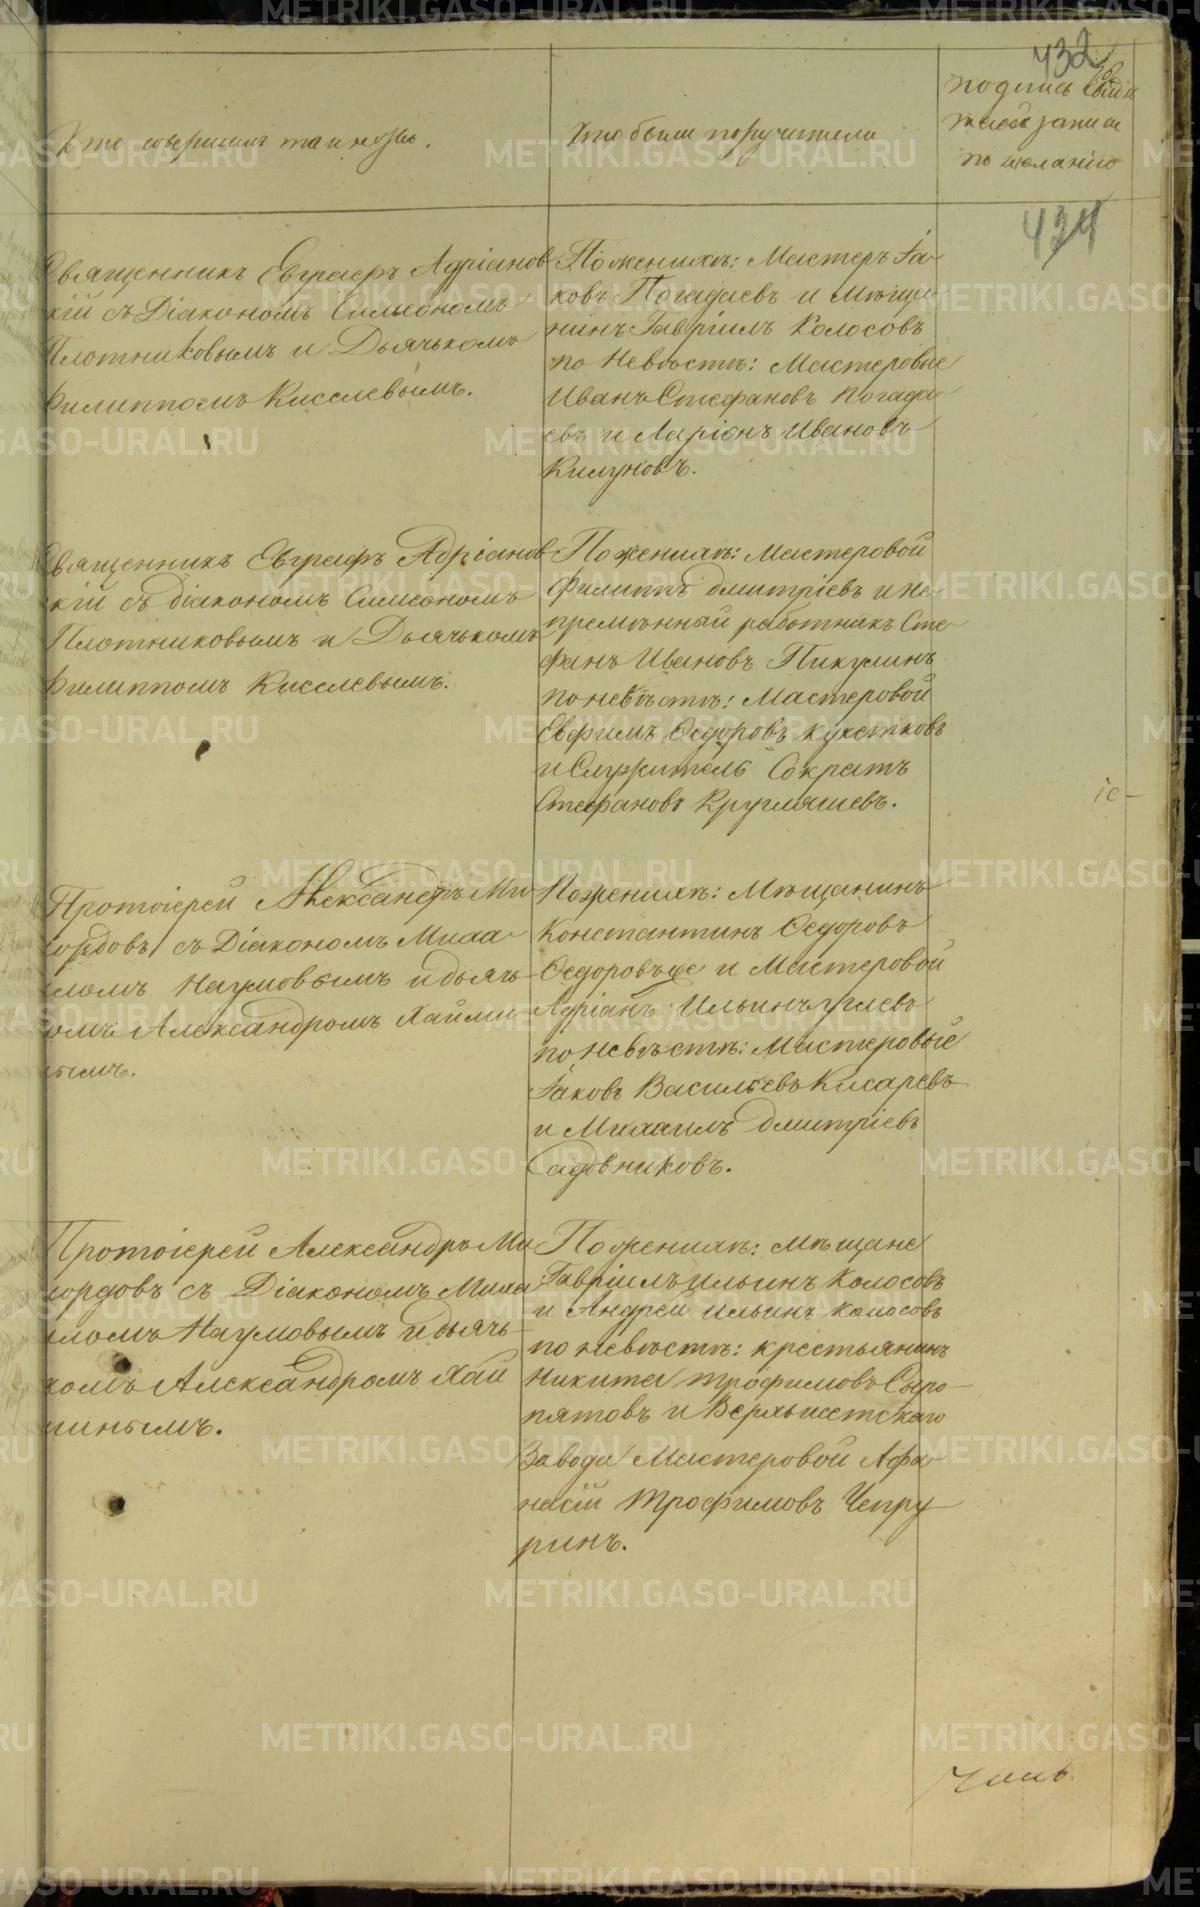 432
Кто совершалъ таинство.
Кто были поручители
подпись свидѣ
телей записи
по желанію
434
Священникъ Евграфъ Адріанов
скій съ Діакономъ Симеономъ
Плотниковымъ и Дьячькомъ
Филиппомъ Киселевымъ.
По женихѣ: Мастеръ Іа-
ковъ Погадаевъ и Мѣща-
нинъ Гавріилъ Колосовъ
по Невѣстѣ: Мастеровые
Иванъ Стефановъ Погада-
евъ и Ларіонъ Ивановъ
Килуновъ.
Священникъ Евграфъ Адріанов
скій съ діакономъ Симеономъ
Плотниковымъ и Дьячькомъ
Филиппомъ Киселевымъ.
По женихѣ: Мастеровой
Филиппъ Дмитріевъ и не-
премѣнный работникъ Сте-
фанъ Ивановъ Пикулинъ
по невѣстѣ: Мастеровой
Евфимъ Ѳедоровъ
и Служитель Сократъ
Стефановъ Кругляшевъ.
Протоіерей Александръ Ми-
лордовъ съ Діакономъ Миха-
иломъ Наумовымъ и дьячь-
комъ Александромъ Хайми-
нымъ.
По женихѣ: Мѣщанинъ
Константинъ Ѳедоровъ
Ѳедоровъ же и Мастеровой
Адріанъ Ильинъ
по невѣстѣ: Мастеровые
Іаковъ Васильевъ Кисаревъ
и Михаилъ Дмитріевъ
Садовниковъ.
Протоіерей Александръ Ми
лордовъ съ Діакономъ Миха
иломъ Наумовымъ и дьячь-
комъ Александромъ Хай
минымъ.
По женихѣ: Мѣщане
Гавріилъ Ильинъ Колосовъ
и Андрей Ильинъ Колосовъ
по невѣстѣ: крестьянинъ
Никита Трофимовъ Сыро-
пятовъ и Верхъисетскаго
Завода Мастеровой Афа-
насій Трофимовъ Чепру-
ринъ.